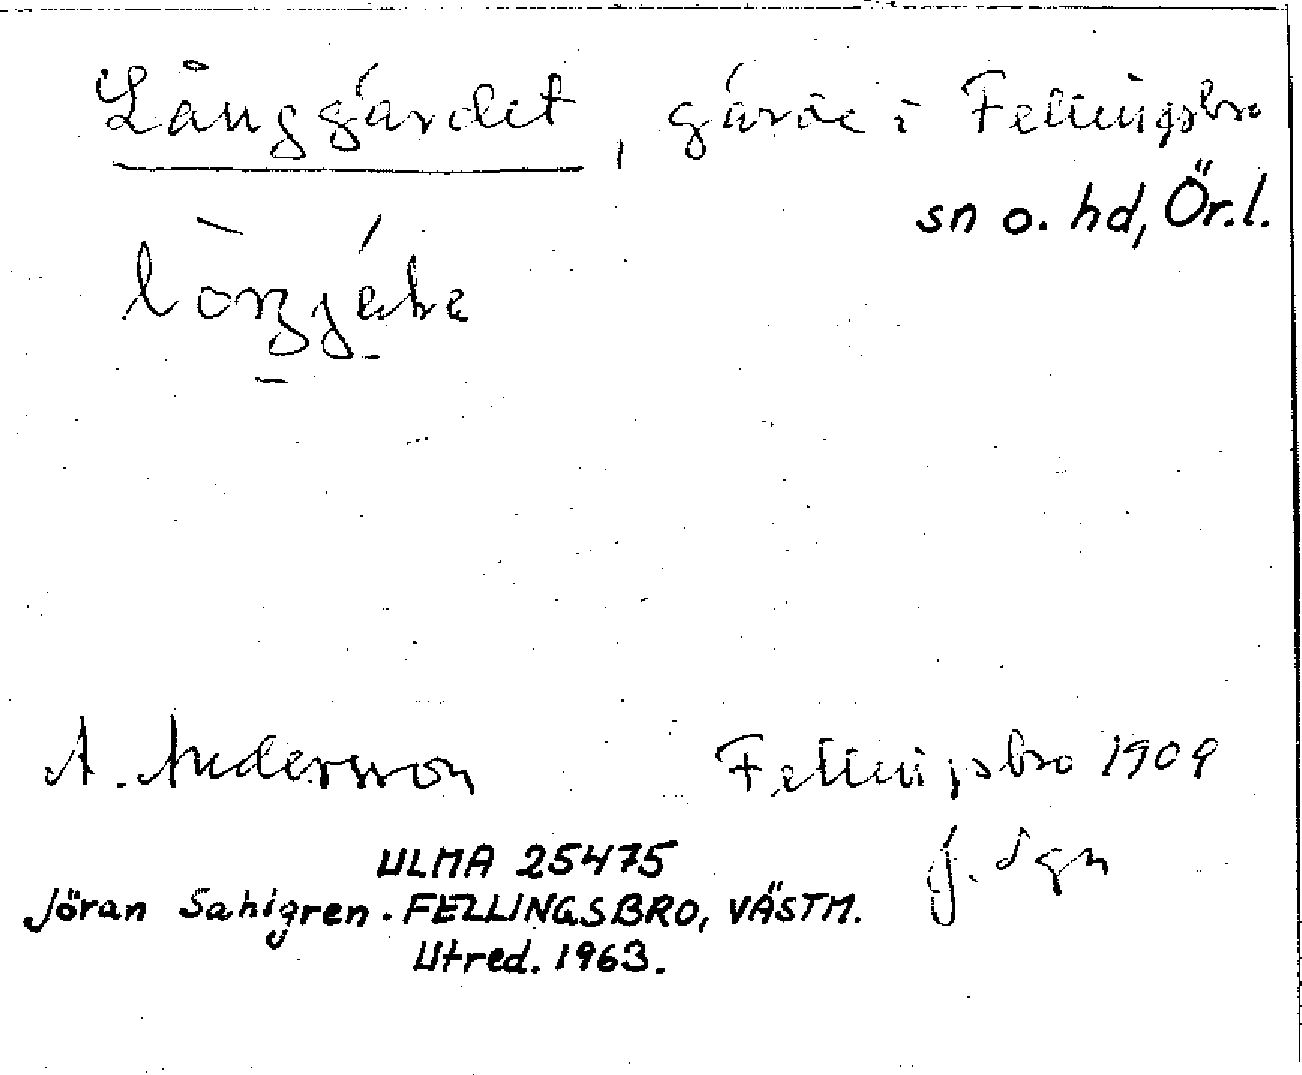 Långgärdet, gärde i Fellingsbro
sn o. hd, Ör.l.
A. Andersson Fellingsbro 1909
J. Sgn
ULMA 25475
Jöran Sahlgren. FELLINGSBRO, VÄSTM.
Utred. 1963.